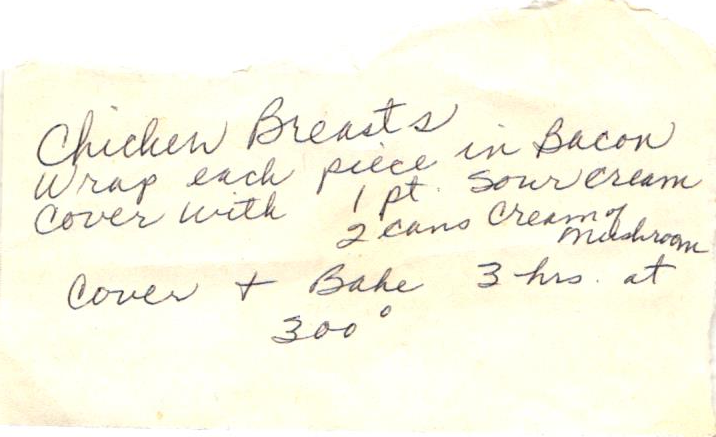 Chicken Breasts
Wrap each piece in Bacon
Cover with 1 pt. Sour cream
2 cans Cream of
Mushroom
Cover + Bake 3 hrs. at
300°